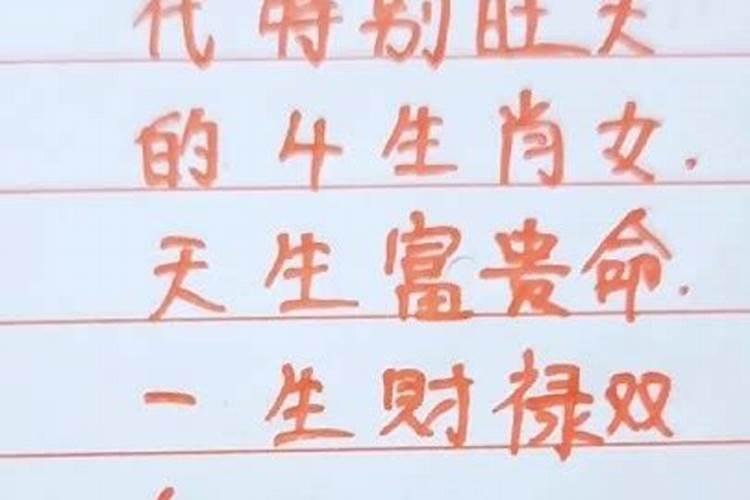 代特别旺夫
的4生肖女.
天生富贵命.
一生财禄双